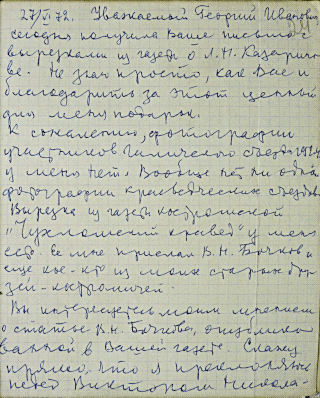 27/VI 72. Уважаемый Георгий Иванович,
сегодня получила Ваше письмо с
вырезками из газеты о Л.Н. Казарино-
ве. Не знаю просто, как Вас и
благодарить за этот ценный
для меня подарок.
К сожалению, фотографии
участников Галичского съезда
у меня нет. Вообще нет ни одной
фотографии краеведческих съездов.
Вырезка из газеты костромской
"Чухломский краевед" у меня
есть. Ее мне прислал В.Н. Бочков и
еще кое-кто из моих старых дру-
зей-костромичей.
Вы интересуетесь моим мнением
о статье В.Н. Бочкова, опублико-
ванной в Вашей газете. Скажу
прямо, что я преклоняюсь
перед Виктором Никола-